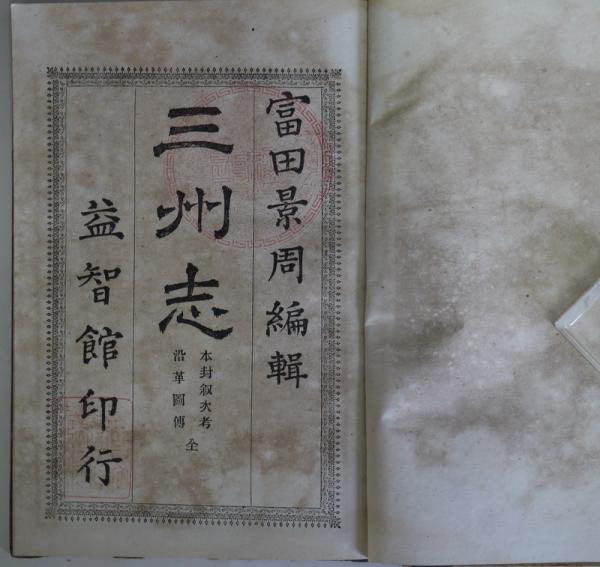 富田景周編輯
三州志
本封叙次考
沿革圖傳
全
益智館印行